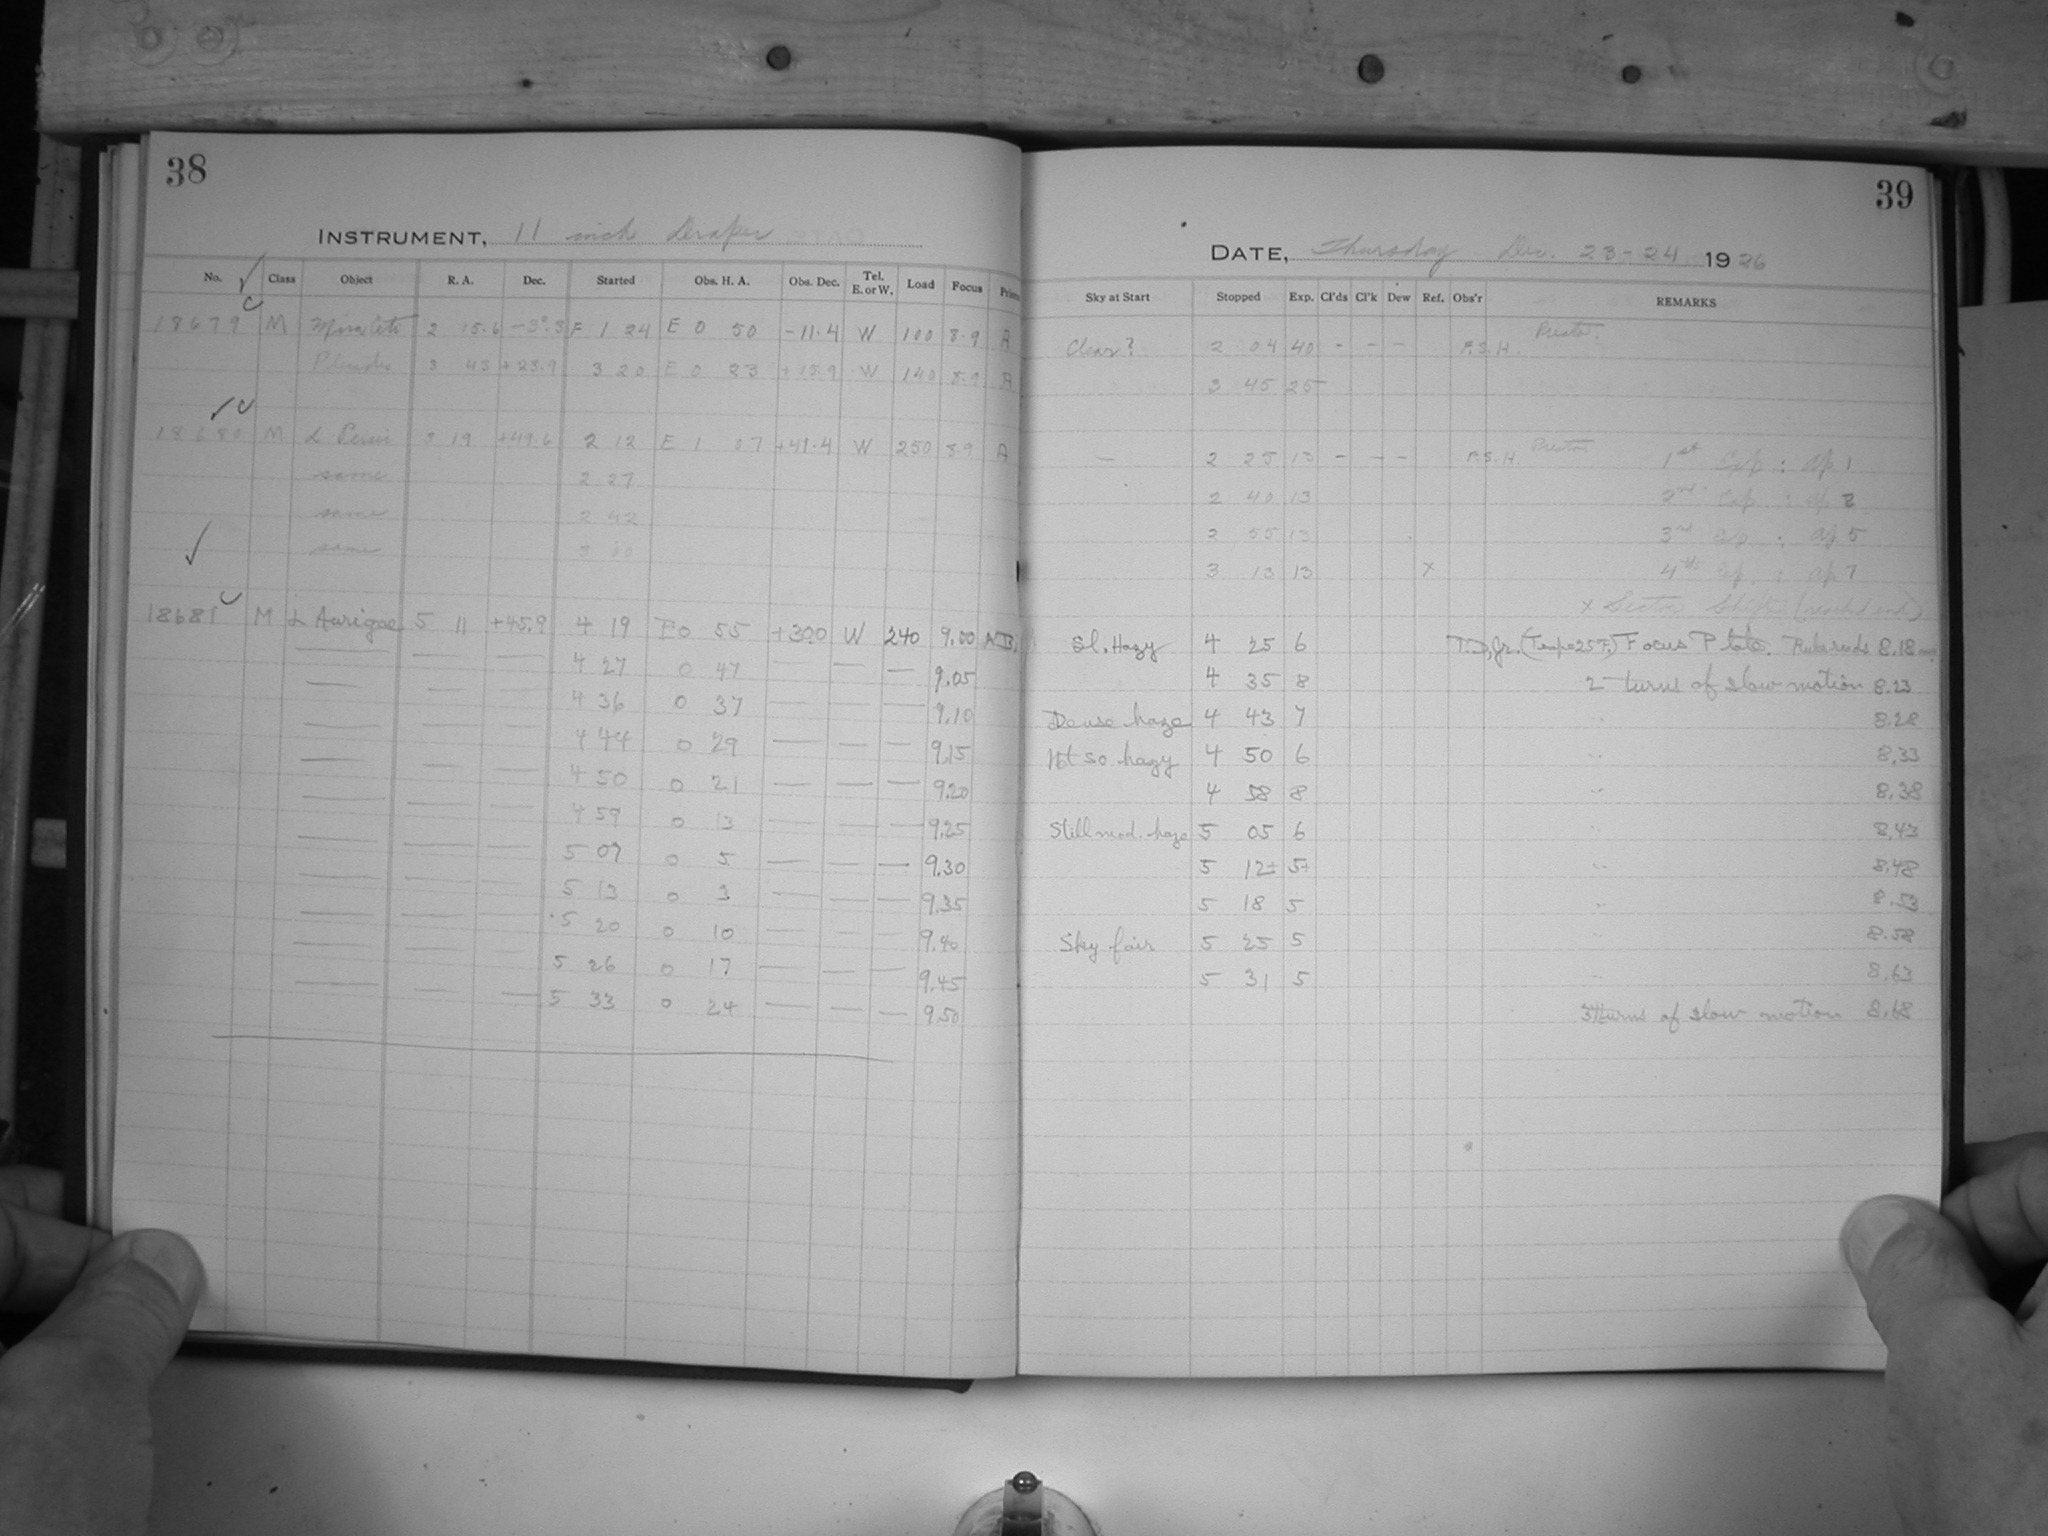 38
INSTRUMENT, 11 inch Draper
No. Class Object R. A. Dec. Started Obs. H. A. Obs. Dec. Tel. E. or W. Load Focus
18679 M Mira Ceti 2 15.6 -3°.3 E 1 24 E 0 50 -11.4 W 100 8.9 A
Pleiades 3 43 +23.9 3 20 E 0 23 +15.9 W 140 8.9 A
18680 M α Persei 3 19 +49.6 2 12 E 1 07 +41.4 W 250 8.9 A
same 2 27
same 2 42
same 3 00
18681 M α Aurigae 5 11 +45.9 4 19 E 0 55 +30.0 W 240 9.00
4 27 0 47 9.05
4 36 0 37 9.10
4 44 0 29 9.15
4 50 0 21 9.20
4 59 0 13 9.25
5 07 0 5 9.30
5 13 0 3 9.35
5 20 0 10 9.40
5 26 0 17 9.45
5 33 0 24 9.50
39
DATE, Thursday Dec. 23-24 1926
Sky at Start Stopped Exp. Cl'ds Cl'k Dew Ref. Obs'r REMARKS
Clear? 2 04 40 - - - F.S.H.
3 45 25
— 2 25 13 - - - F.S.H. 1st Exp : ap 1
2 40 13 2nd Exp : ap 2
2 55 13 3rd Exp : ap 5
3 13 13 x 4th Exp. : ap 7
x Sector Slipped
Sl. Hazy 4 25 6 T.D, Jr. (Temp=25 F.) Focus Plate. Rule reads 8.18
4 35 8 2 turns of slow motion 8.23
Dense haze 4 43 7 " 8.28
Not so hazy 4 50 6 " 8.33
4 58 8 " 8.38
Still mod. haze 5 05 6 " 8.43
5 12± 5+ " 8.48
5 18 5 " 8.53
Sky fair 5 25 5 " 8.58
5 31 5 " 8.63
turns of slow motion 8.68